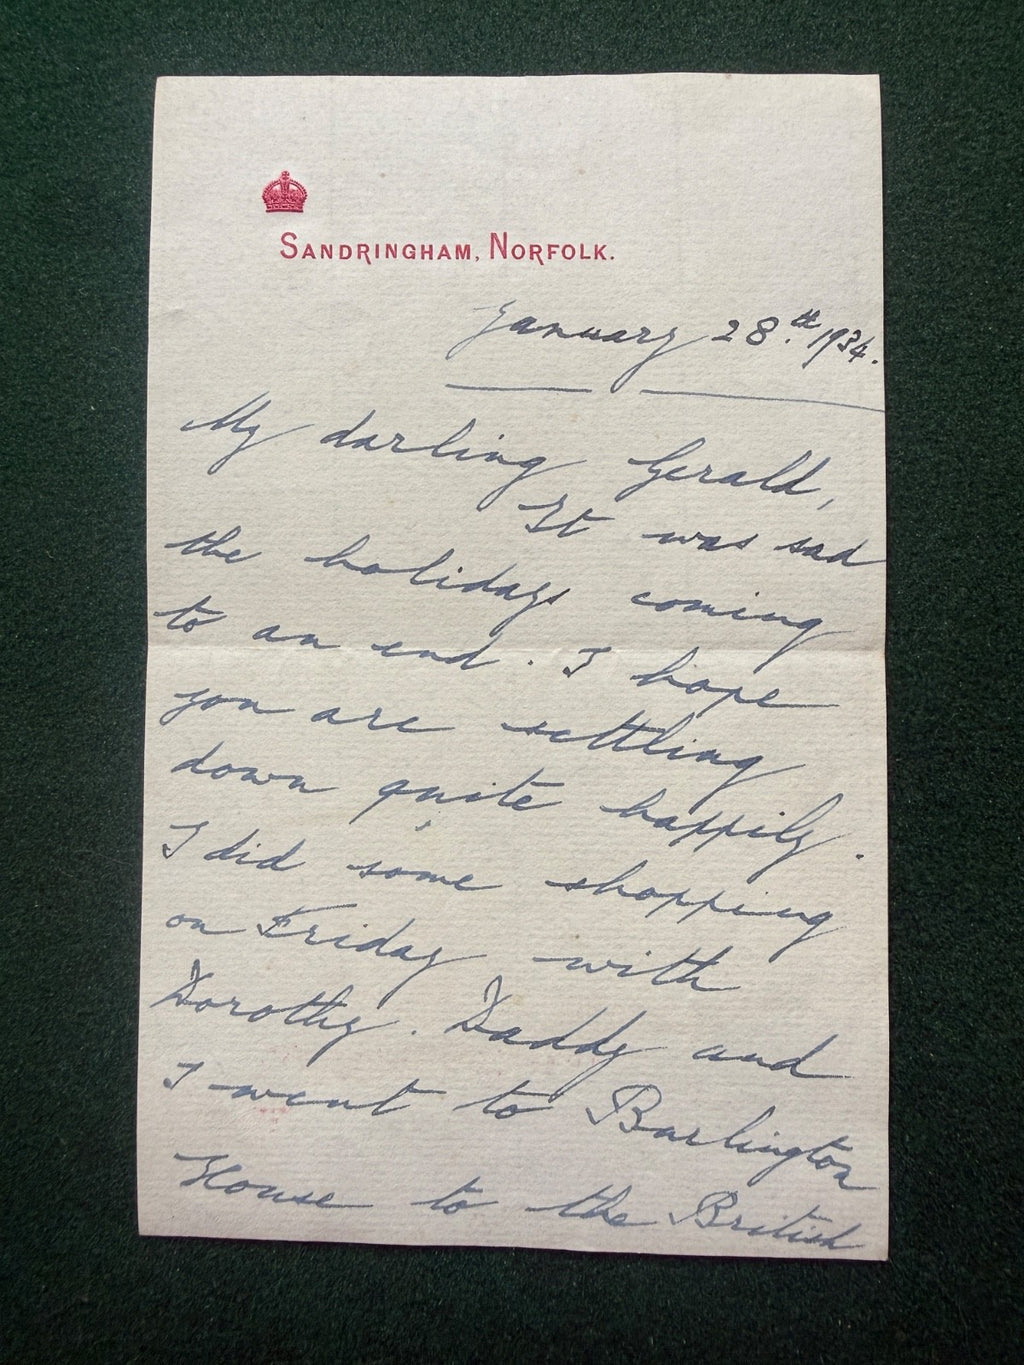 SANDRINGHAM, NORFOLK.
January 28th. 1934.
My darling Gerald,
It was sad
the holidays coming
to an end. I hope
you are settling
down quite happily.
I did some shopping
on Friday with
Dorothy. Daddy and
I went to Burlington
House to the British